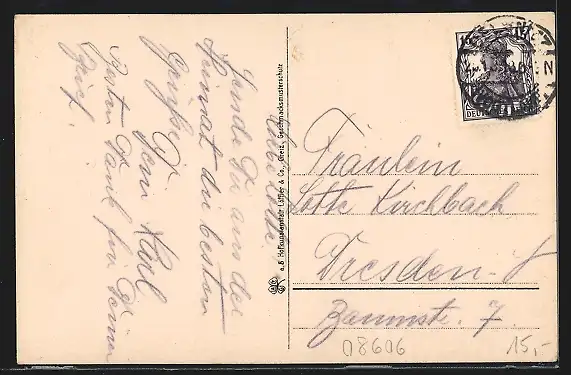 Liebe Lotte.
Sende Dir aus der
Heimat die besten
Grüße
Dein Karl
Besten Dank für Deinen
Brief.
a. B. Hofkunstanstalt Löffler & Co., Greiz, Geschmacksmusterschutz
DEUTSCHES
Fräulein
Lotte Kirchbach
Dresden-J
Zaunstr. 7.
08606
15,-